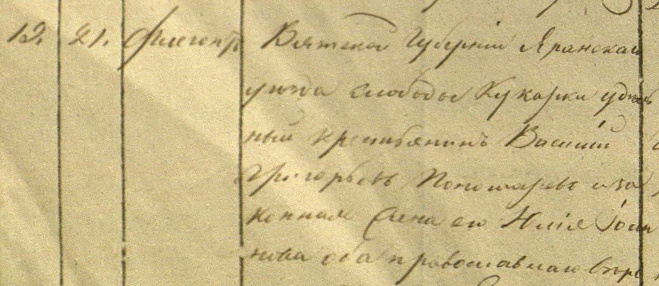 12. 21. Флегонтъ Вятской Губерніи Яранскаго
уезда слободы Кукарки удѣль
ный крестьянинъ Василій
Григорьевъ Пономаревъ и за
конная жена его Юлія Іоан
нова оба православнаго вѣро